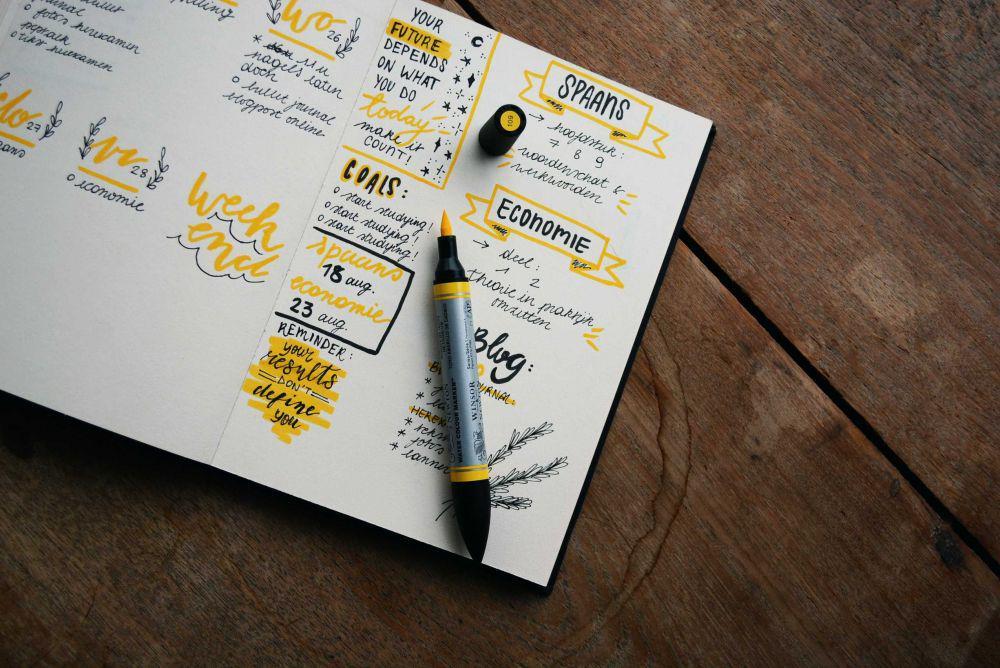 o foto's herexamen
o tekst herexamen
WO 26
11 u
nagels laten
doen
o bullet journal
blogpost online
27
vr 28
o economie
Week
end
YOUR
FUTURE
DEPENDS
ON WHAT
YOU DO
today
make it
COUNT!
GOALS:
o start studying!
o start studying!
o start studying!
spaans
18 aug.
economie
23 aug.
REMINDER:
your
results
DON'T
define
you
SPAANS
→ hoofdstuk:
7 8 9
woordenschat &
werkwoorden
ECONOMIE
→ deel:
1 2
theorie in praktijk
omzetten
Blog:
109
WATER COLOUR MARKER
WINSOR